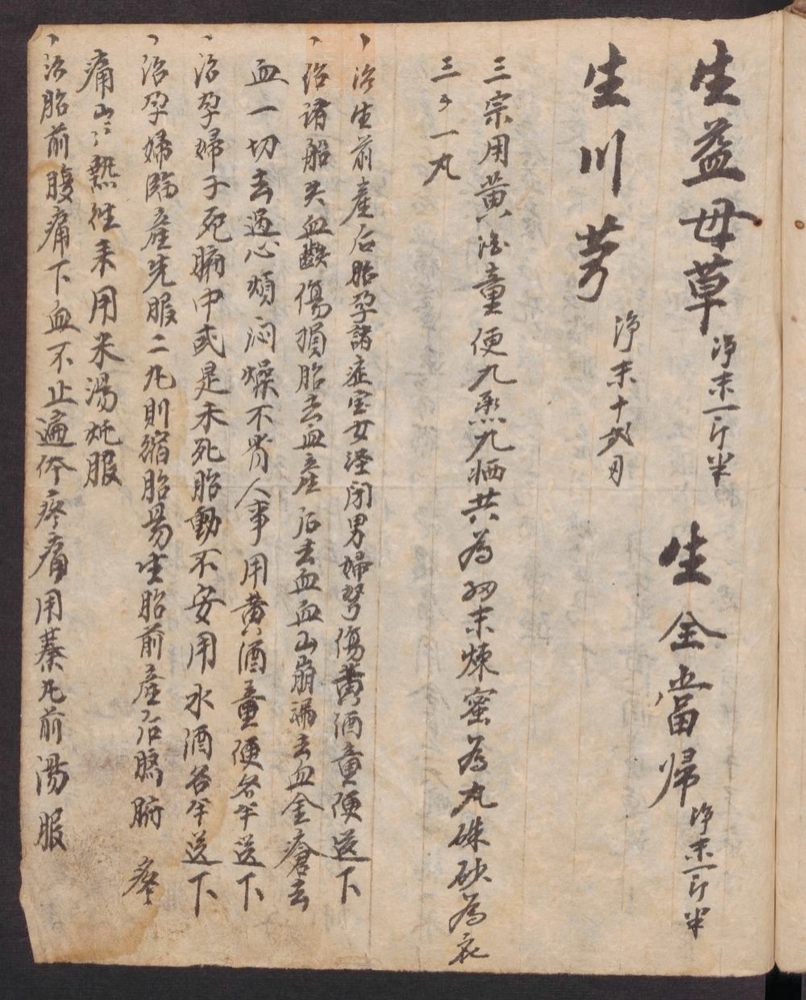 生益母草 净末一斤半 生全當帰 净末一斤半
生川芎 净末十
三宗用黄酒童便九蒸九晒共為細末煉蜜為丸硃砂為衣
三个一丸
治生前產后胎孕諸症室女經闭男婦勞傷黄酒童便送下
治諸般失血跌傷損胎去血產后去血血山崩漏去血金瘡去
血一切去過心煩闷燥不省人事用黄酒童便各半送下
治孕婦子死腑中或是未死胎動不安用水酒各半送下
治孕婦臨產先服二丸則縮胎易生胎前產后臍腑疼
痛寒熱往来用米湯炖服
治胎前腹痛下血不止遍体疼痛用蓁艽前湯服